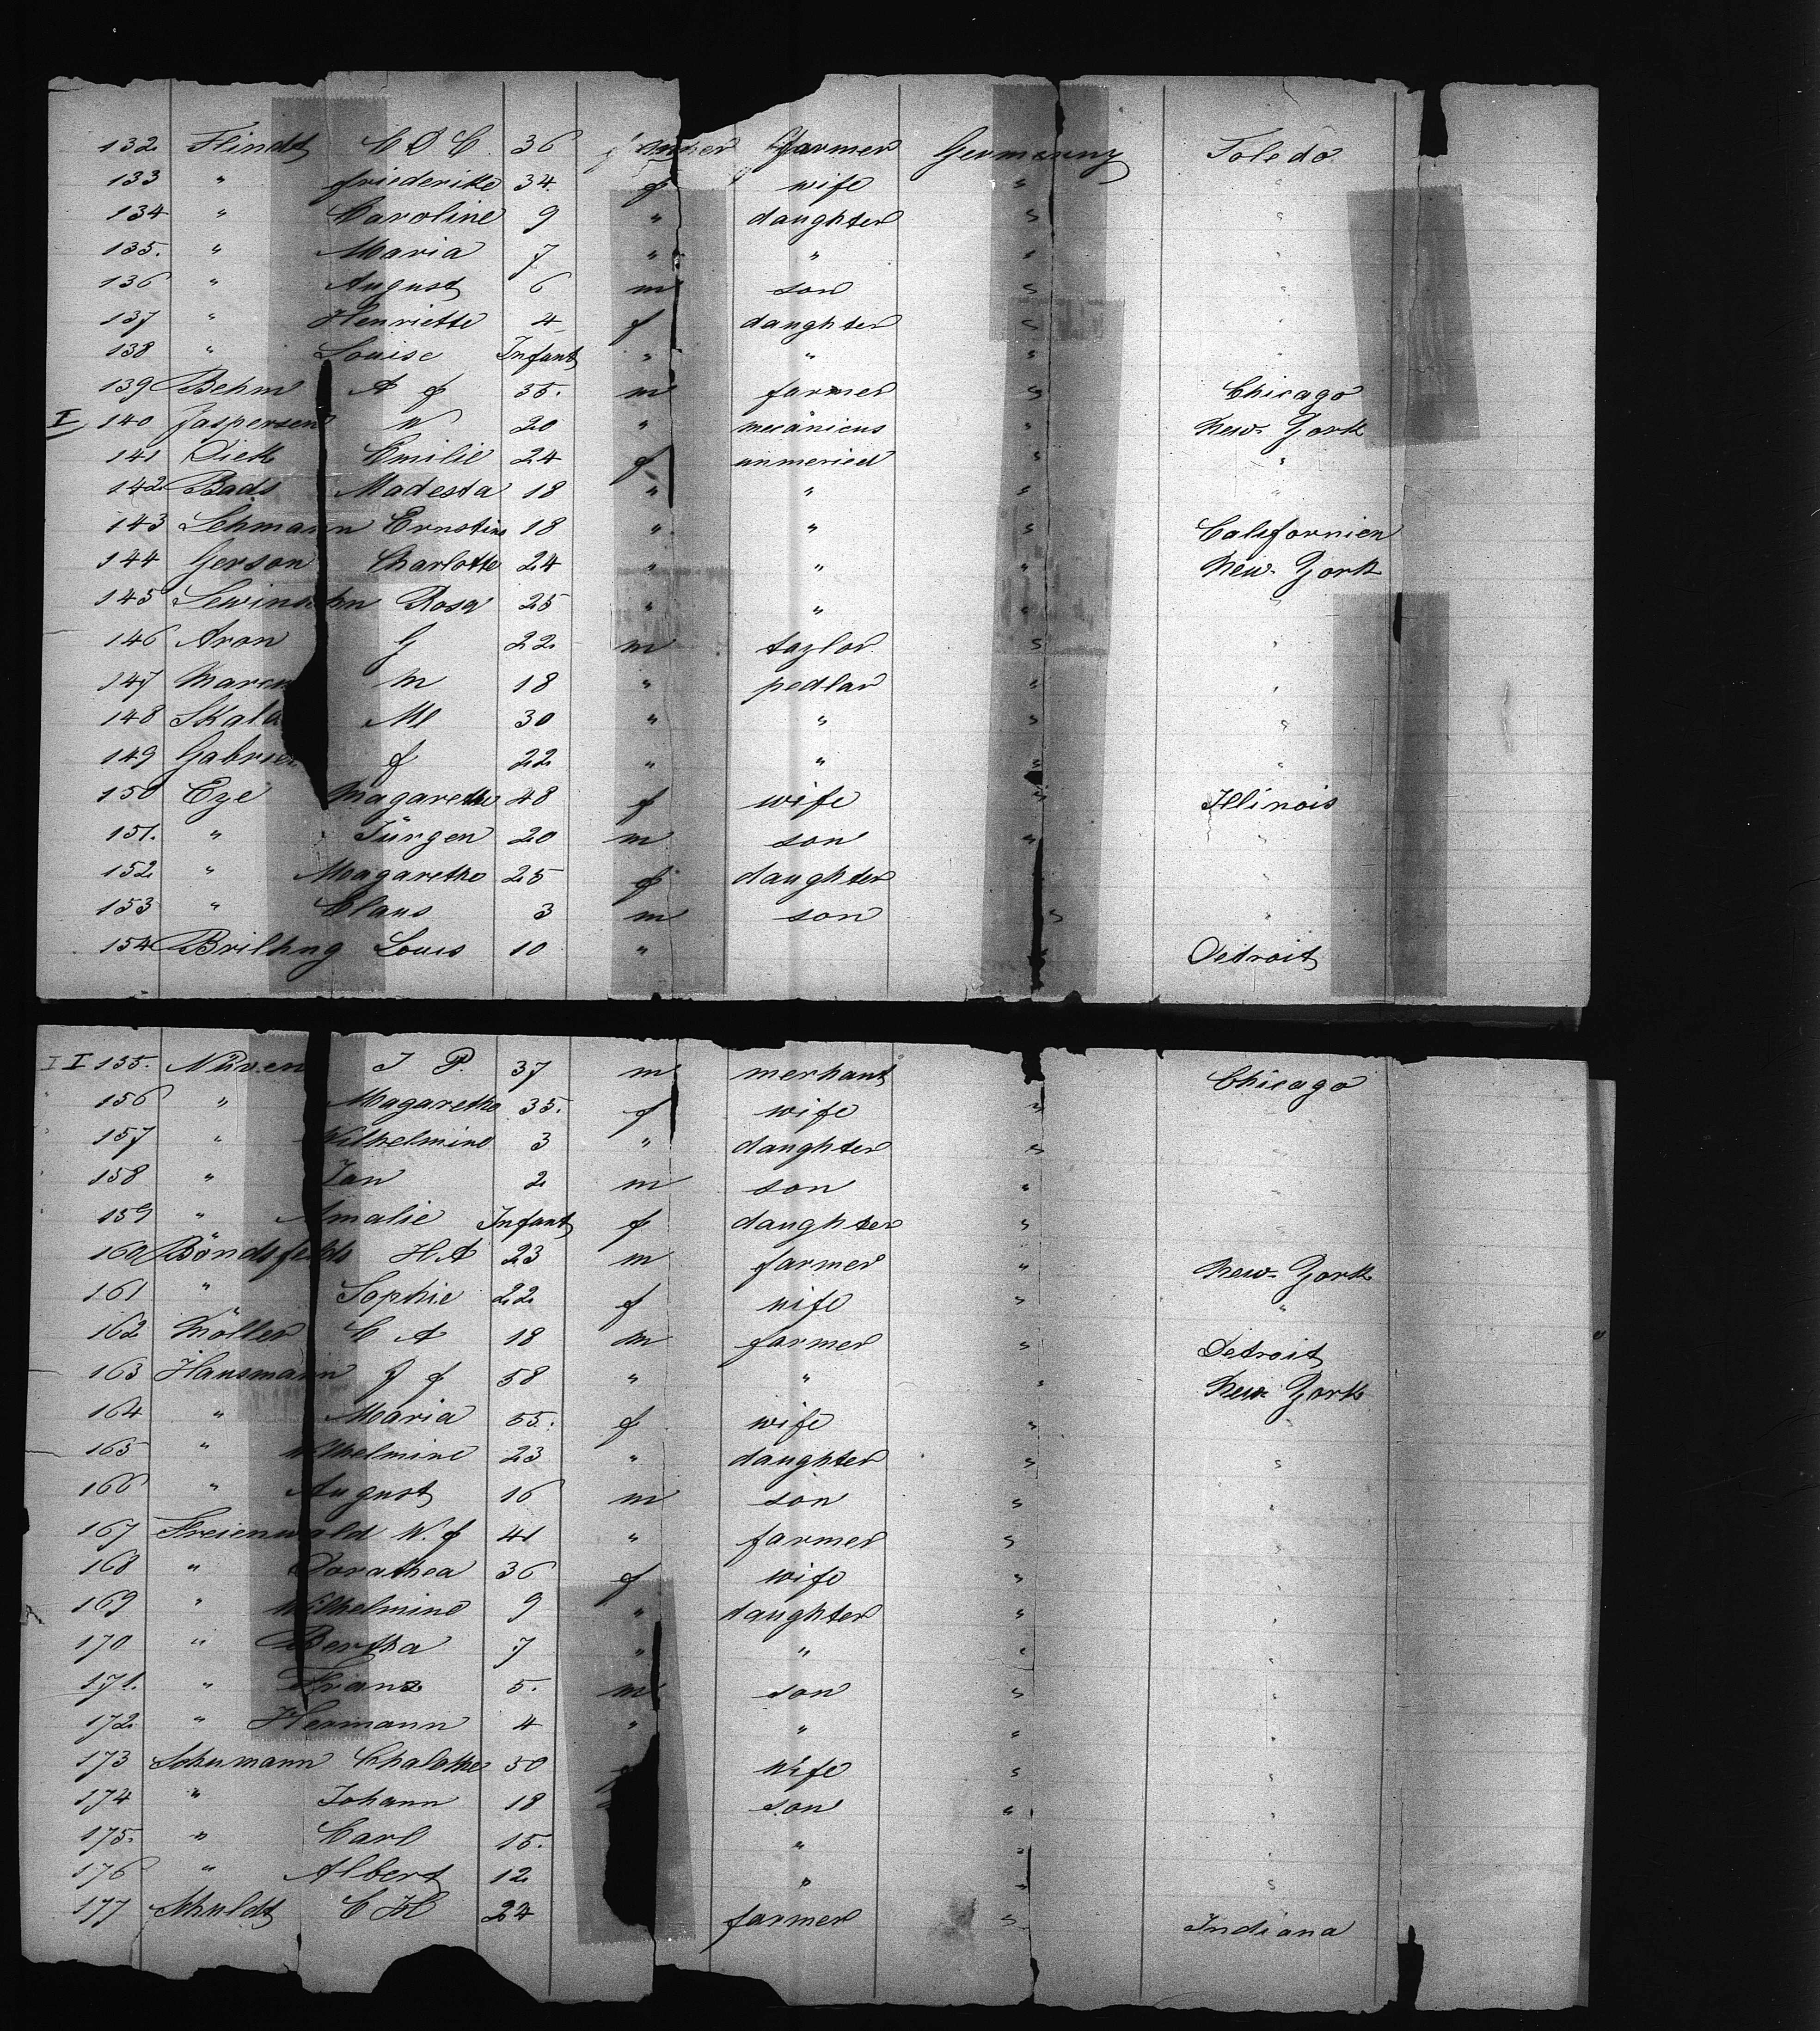 132 Flindt C D C. 36 farmer Germany Toledo
133 " Friederike 34. f wife " "
134 " Caroline 9 " daughter " "
135. " Maria 7 " " " "
136 " August 6 m son " "
137 " Henriette 4 f daughter " "
138 " Louise Infant " " " "
139 Behm A F 35. m farmer " Chicago
I 140 Jaspersen N 20 " mecanicus " New-York
141 Diek Emilie 24 f unmeried " "
142 Bads Madesta 18 " " " "
143 Lehmann Ernstine 18 " " " Californien
144 Gerson Charlotte 24 " " " New-York
145 Lewinsohn Rosa 25 " " " "
146 Aron G 22 m taylor " "
147 M 18 " pedlar " "
148 Skala M 30 " " " "
149 F 22 " " " "
150 Eze Magarethe 48 f wife " Illinois
151. " Jürgen 20 m son " "
152 " Magarethe 25 f daughter "
153 " Claus 3 m son " "
154 Louis 10 " Detroit
I I 155. Nüven J P. 37 m merhant " Chicago
156 " Magarethe 35. f wife "
157 " Wilhelmine 3 " daughter "
158 " Jan 2 m son "
159 " Amalie Infant f daughter "
160 Böndsfeldt H A 23 m farmer " New-York
161 " Sophie 22 f wife " "
162 Möller C A 18 m farmer " Detroit
163 Hansmann J F 58 " " " New York
164 " Maria 55. f wife "
165 " Wilhelmine 23 " daughter " "
166 " August 16 m son " "
167 Freienwald W. F 41 " farmer " "
168 " Dorathea 36 f wife " "
169 " Wilhelmine 9 " daughter " "
170 " Bertha 7 " " " "
171. " Franz 5. m son " "
172 " Hermann 4 " " " "
173 Schumann Chalothe 50 wife " "
174 " Johann 18 son " "
175. " Carl 15. " " "
176 " Albert 12 " " "
177 Schuldt C H 24 farmer " Indiana